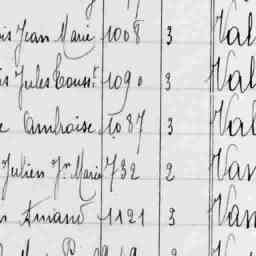 is Jean Marie 1008 3 Val
is Jules Touss.t 1090 3 Val
e Ambroise 1087 3 Val
Julien J.n Marie 732 2 Van
n Amand 1121 3 Van